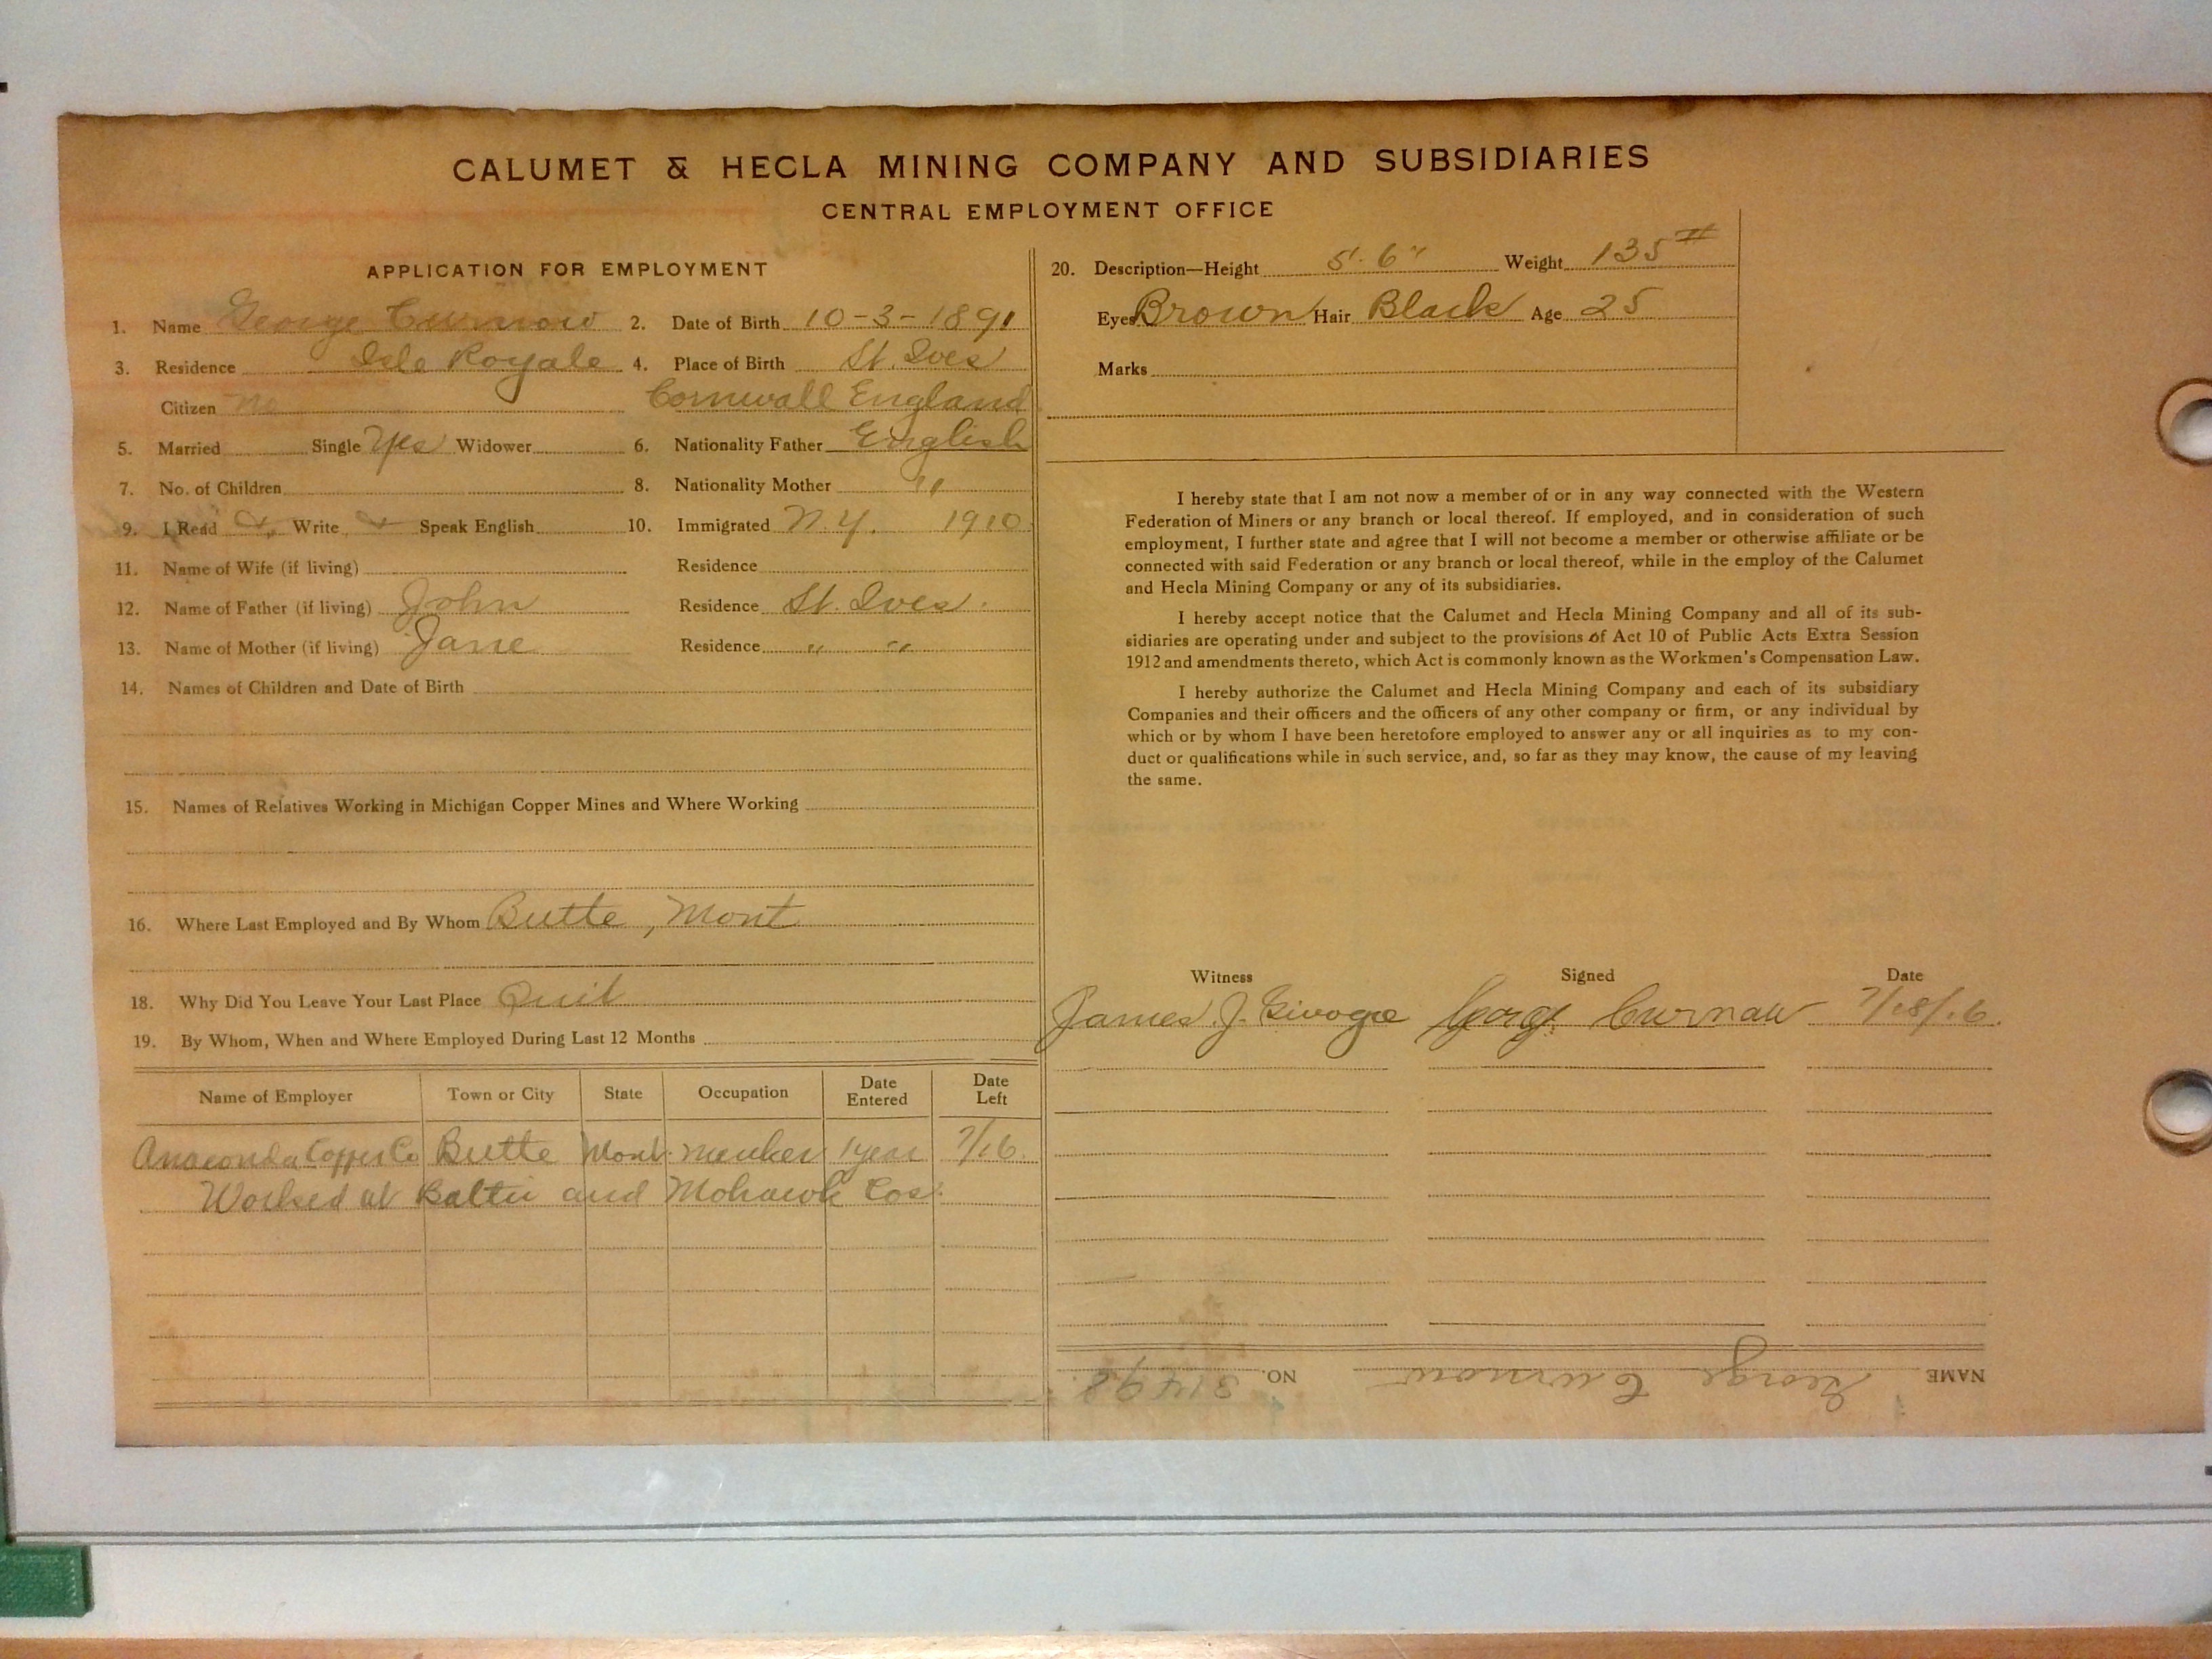 CALUMET & HECLA MINING COMPANY AND SUBSIDIARIES
CENTRAL EMPLOYMENT OFFICE
APPLICATION FOR EMPLOYMENT
1. Name George Curnow 2. Date of Birth 10-3-1891
3. Residence Isle Royale 4. Place of Birth St. Ives
Citizen No Cornwall England
5. Married Single Yes Widower 6. Nationality Father English
7. No. of Children 8. Nationality Mother " "
9. I Read & Write & Speak English 10. Immigrated N.Y. 1910
11. Name of Wife (if living) Residence
12. Name of Father (if living) John Residence St. Ives.
13. Name of Mother (if living) Jane Residence " "
14. Names of Children and Date of Birth
15. Names of Relatives Working in Michigan Copper Mines and Where Working
16. Where Last Employed and By Whom Butte, Mont
18. Why Did You Leave Your Last Place Quit
19. By Whom, When and Where Employed During Last 12 Months
Name of Employer Town or City State Occupation Date Entered Date Left
Anaconda Copper Co Butte Mont. 1 year 7/16.
Worked at Baltic and Mohawk Cos.
20. Description—Height 5'. 6" Weight 135#
Eyes Brown Hair Black Age 25
Marks
I hereby state that I am not now a member of or in any way connected with the Western
Federation of Miners or any branch or local thereof. If employed, and in consideration of such
employment, I further state and agree that I will not become a member or otherwise affiliate or be
connected with said Federation or any branch or local thereof, while in the employ of the Calumet
and Hecla Mining Company or any of its subsidiaries.
I hereby accept notice that the Calumet and Hecla Mining Company and all of its sub-
sidiaries are operating under and subject to the provisions of Act 10 of Public Acts Extra Session
1912 and amendments thereto, which Act is commonly known as the Workmen's Compensation Law.
I hereby authorize the Calumet and Hecla Mining Company and each of its subsidiary
Companies and their officers and the officers of any other company or firm, or any individual by
which or by whom I have been heretofore employed to answer any or all inquiries as to my con-
duct or qualifications while in such service, and, so far as they may know, the cause of my leaving
the same.
Witness Signed Date
James J. George Curnow 7/18/16.
NAME George Curnow NO. 31498